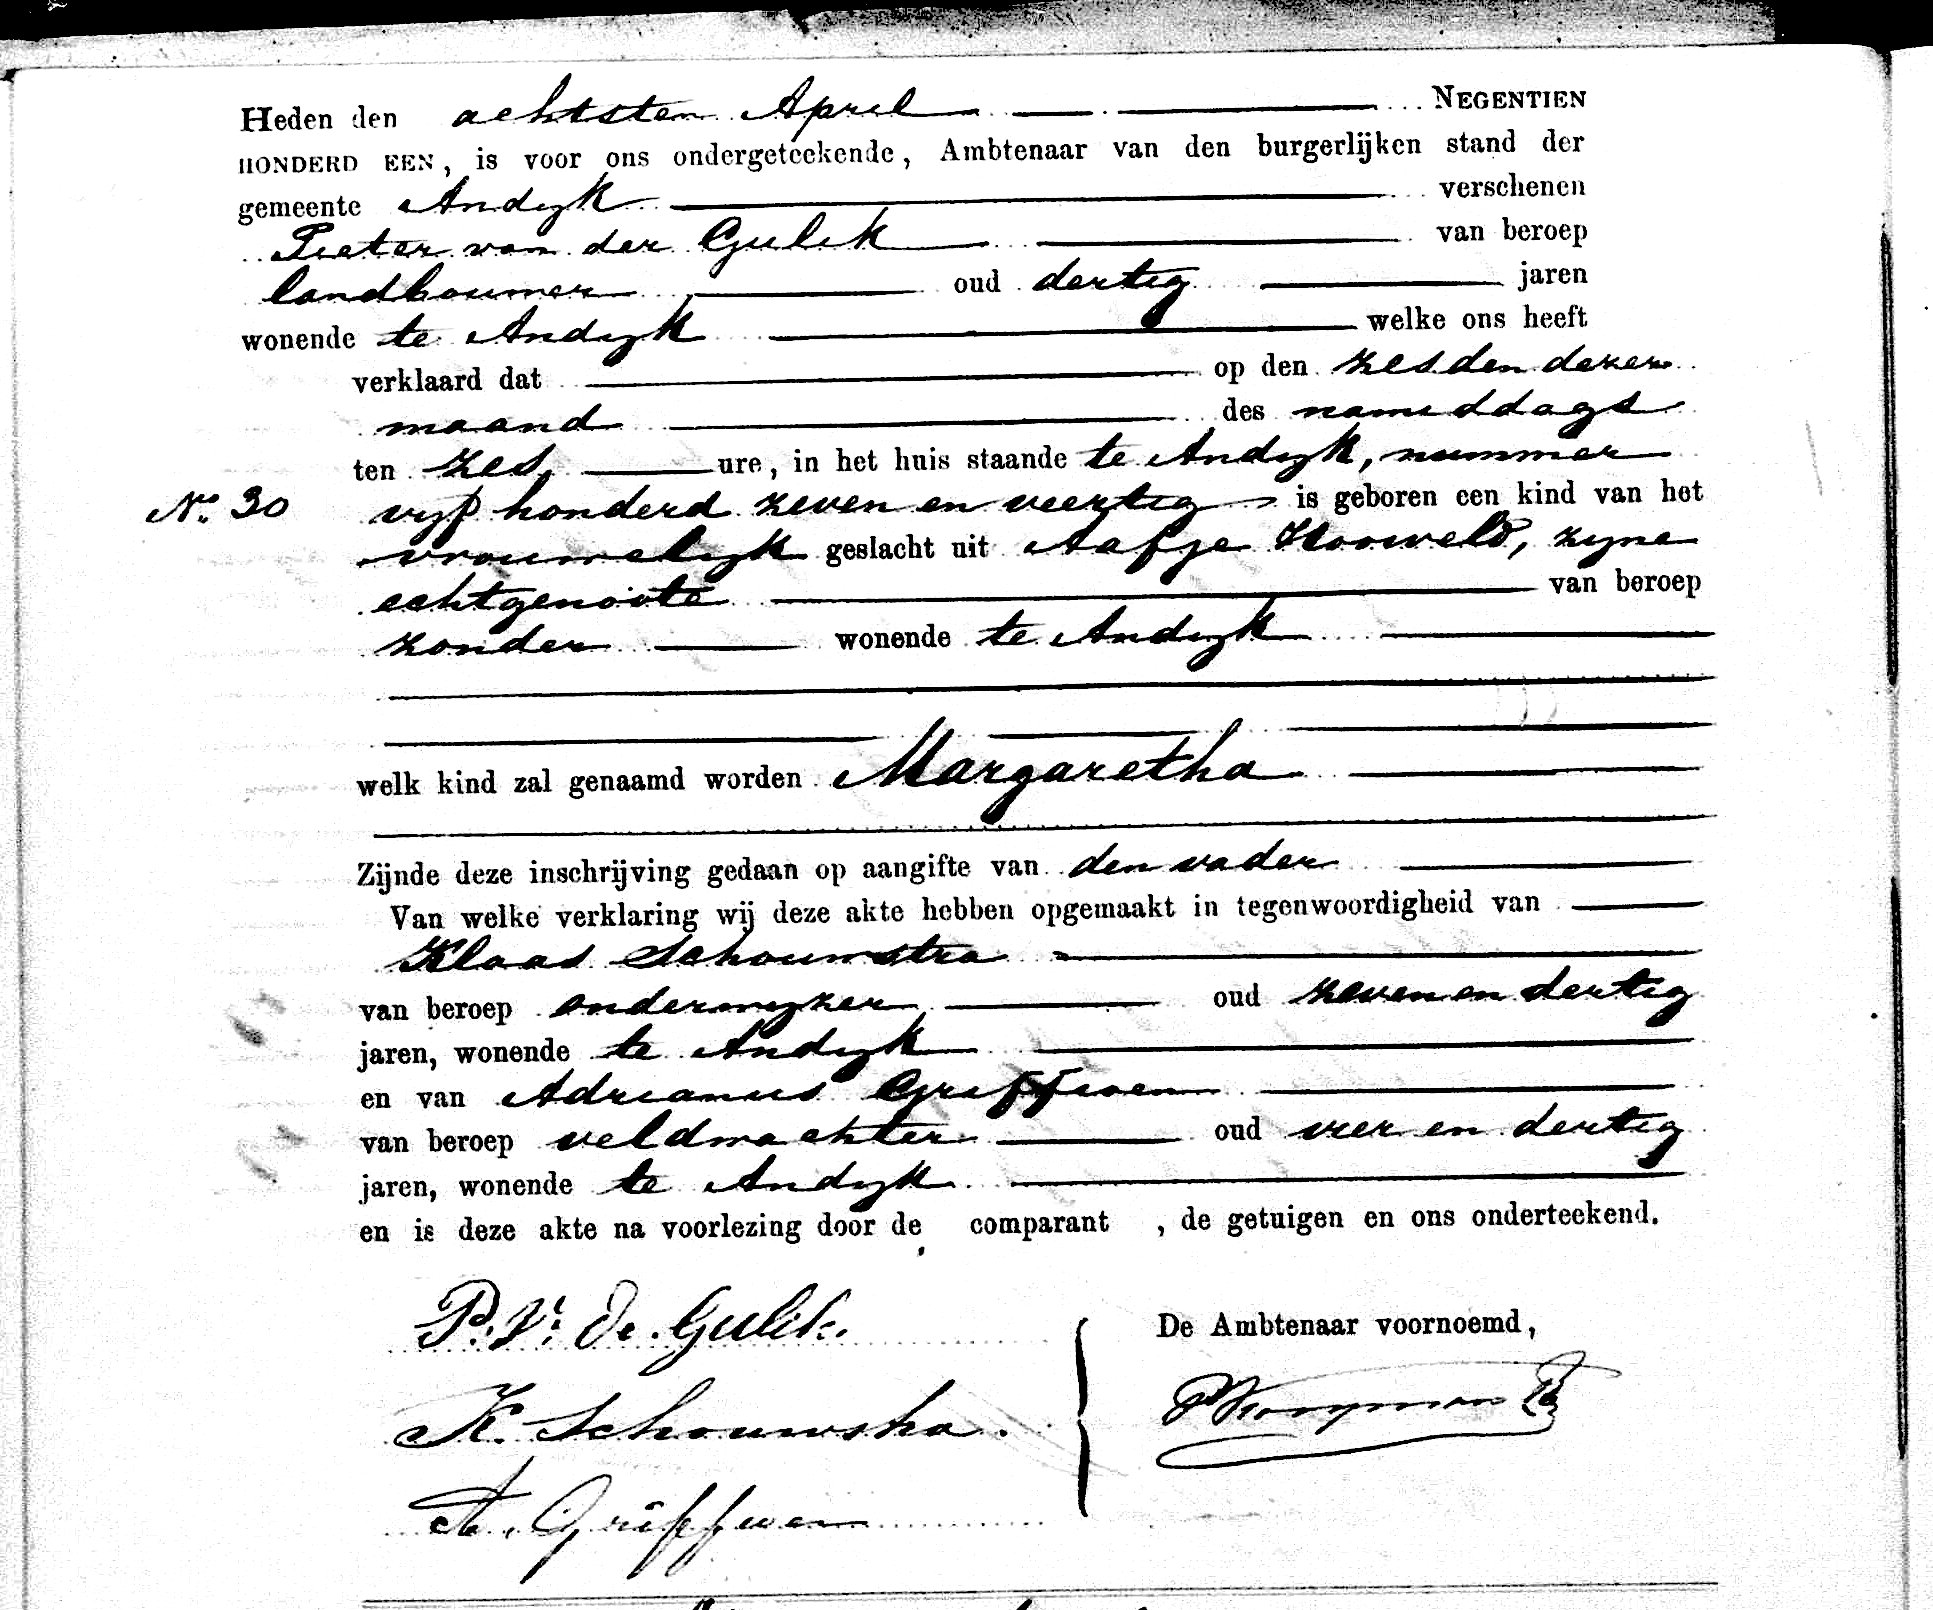 Heden den achtsten April NEGENTIEN
HONDERD EEN, is voor ons ondergeteekende, Ambtenaar van den burgerlijken stand der
gemeente Andijk verschenen
Pieter van der Gulik van beroep
landbouwer oud dertig jaren
wonende te Andijk welke ons heeft
verklaard dat op den zesden dezer
maand des namiddags
ten zes ure, in het huis staande te Andijk, nummer
No. 30 vijf honderd zeven en veertig is geboren een kind van het
vrouwelijk geslacht uit Aafje Hooweld, zijne
echtgenoote van beroep
zonder wonende te Andijk
welk kind zal genaamd worden Margaretha
Zijnde deze inschrijving gedaan op aangifte van den vader
Van welke verklaring wij deze akte hebben opgemaakt in tegenwoordigheid van
Klaas Schouwstra
van beroep onderwijzer oud zeven en dertig
jaren, wonende te Andijk
en van Adrianus Griffioen
van beroep veldwachter oud vier en dertig
jaren, wonende te Andijk
en is deze akte na voorlezing door de comparant , de getuigen en ons onderteekend.
P. v. de. Gulik.
De Ambtenaar voornoemd,
K. Schouwstra.
A. Griffioen